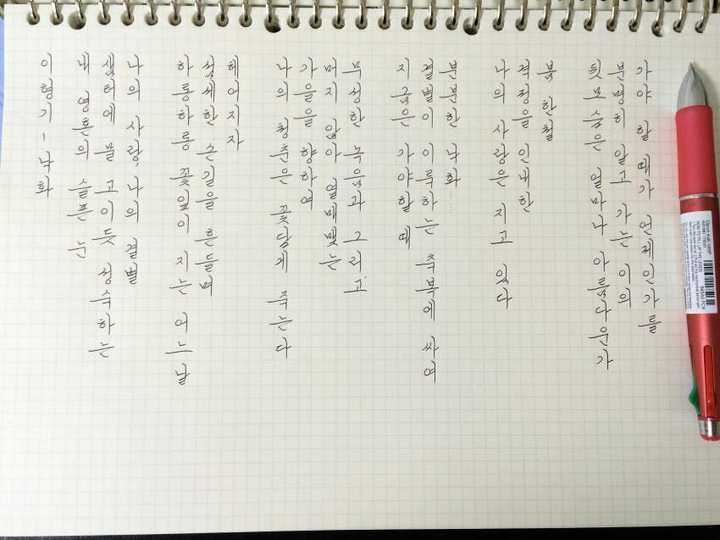 가야 할 때가 언제인가를
분명히 알고 가는 이의
뒷모습은 얼마나 아름다운가
봄 한철
격정을 인내한
나의 사랑은 지고 있다
분분한 낙화
결별이 이룩하는 축복에 싸여
지금은 가야할 때
무성한 녹음과 그리고
머지 않아 열매맺는
가을을 향하여
나의 청춘은 꽃답게 죽는다
헤어지자
섬세한 손길을 흔들며
하롱하롱 꽃잎이 지는 어느 날
나의 사랑, 나의 결별
샘터에 물 고이듯 성숙하는
내 영혼의 슬픈 눈
이형기 - 낙화